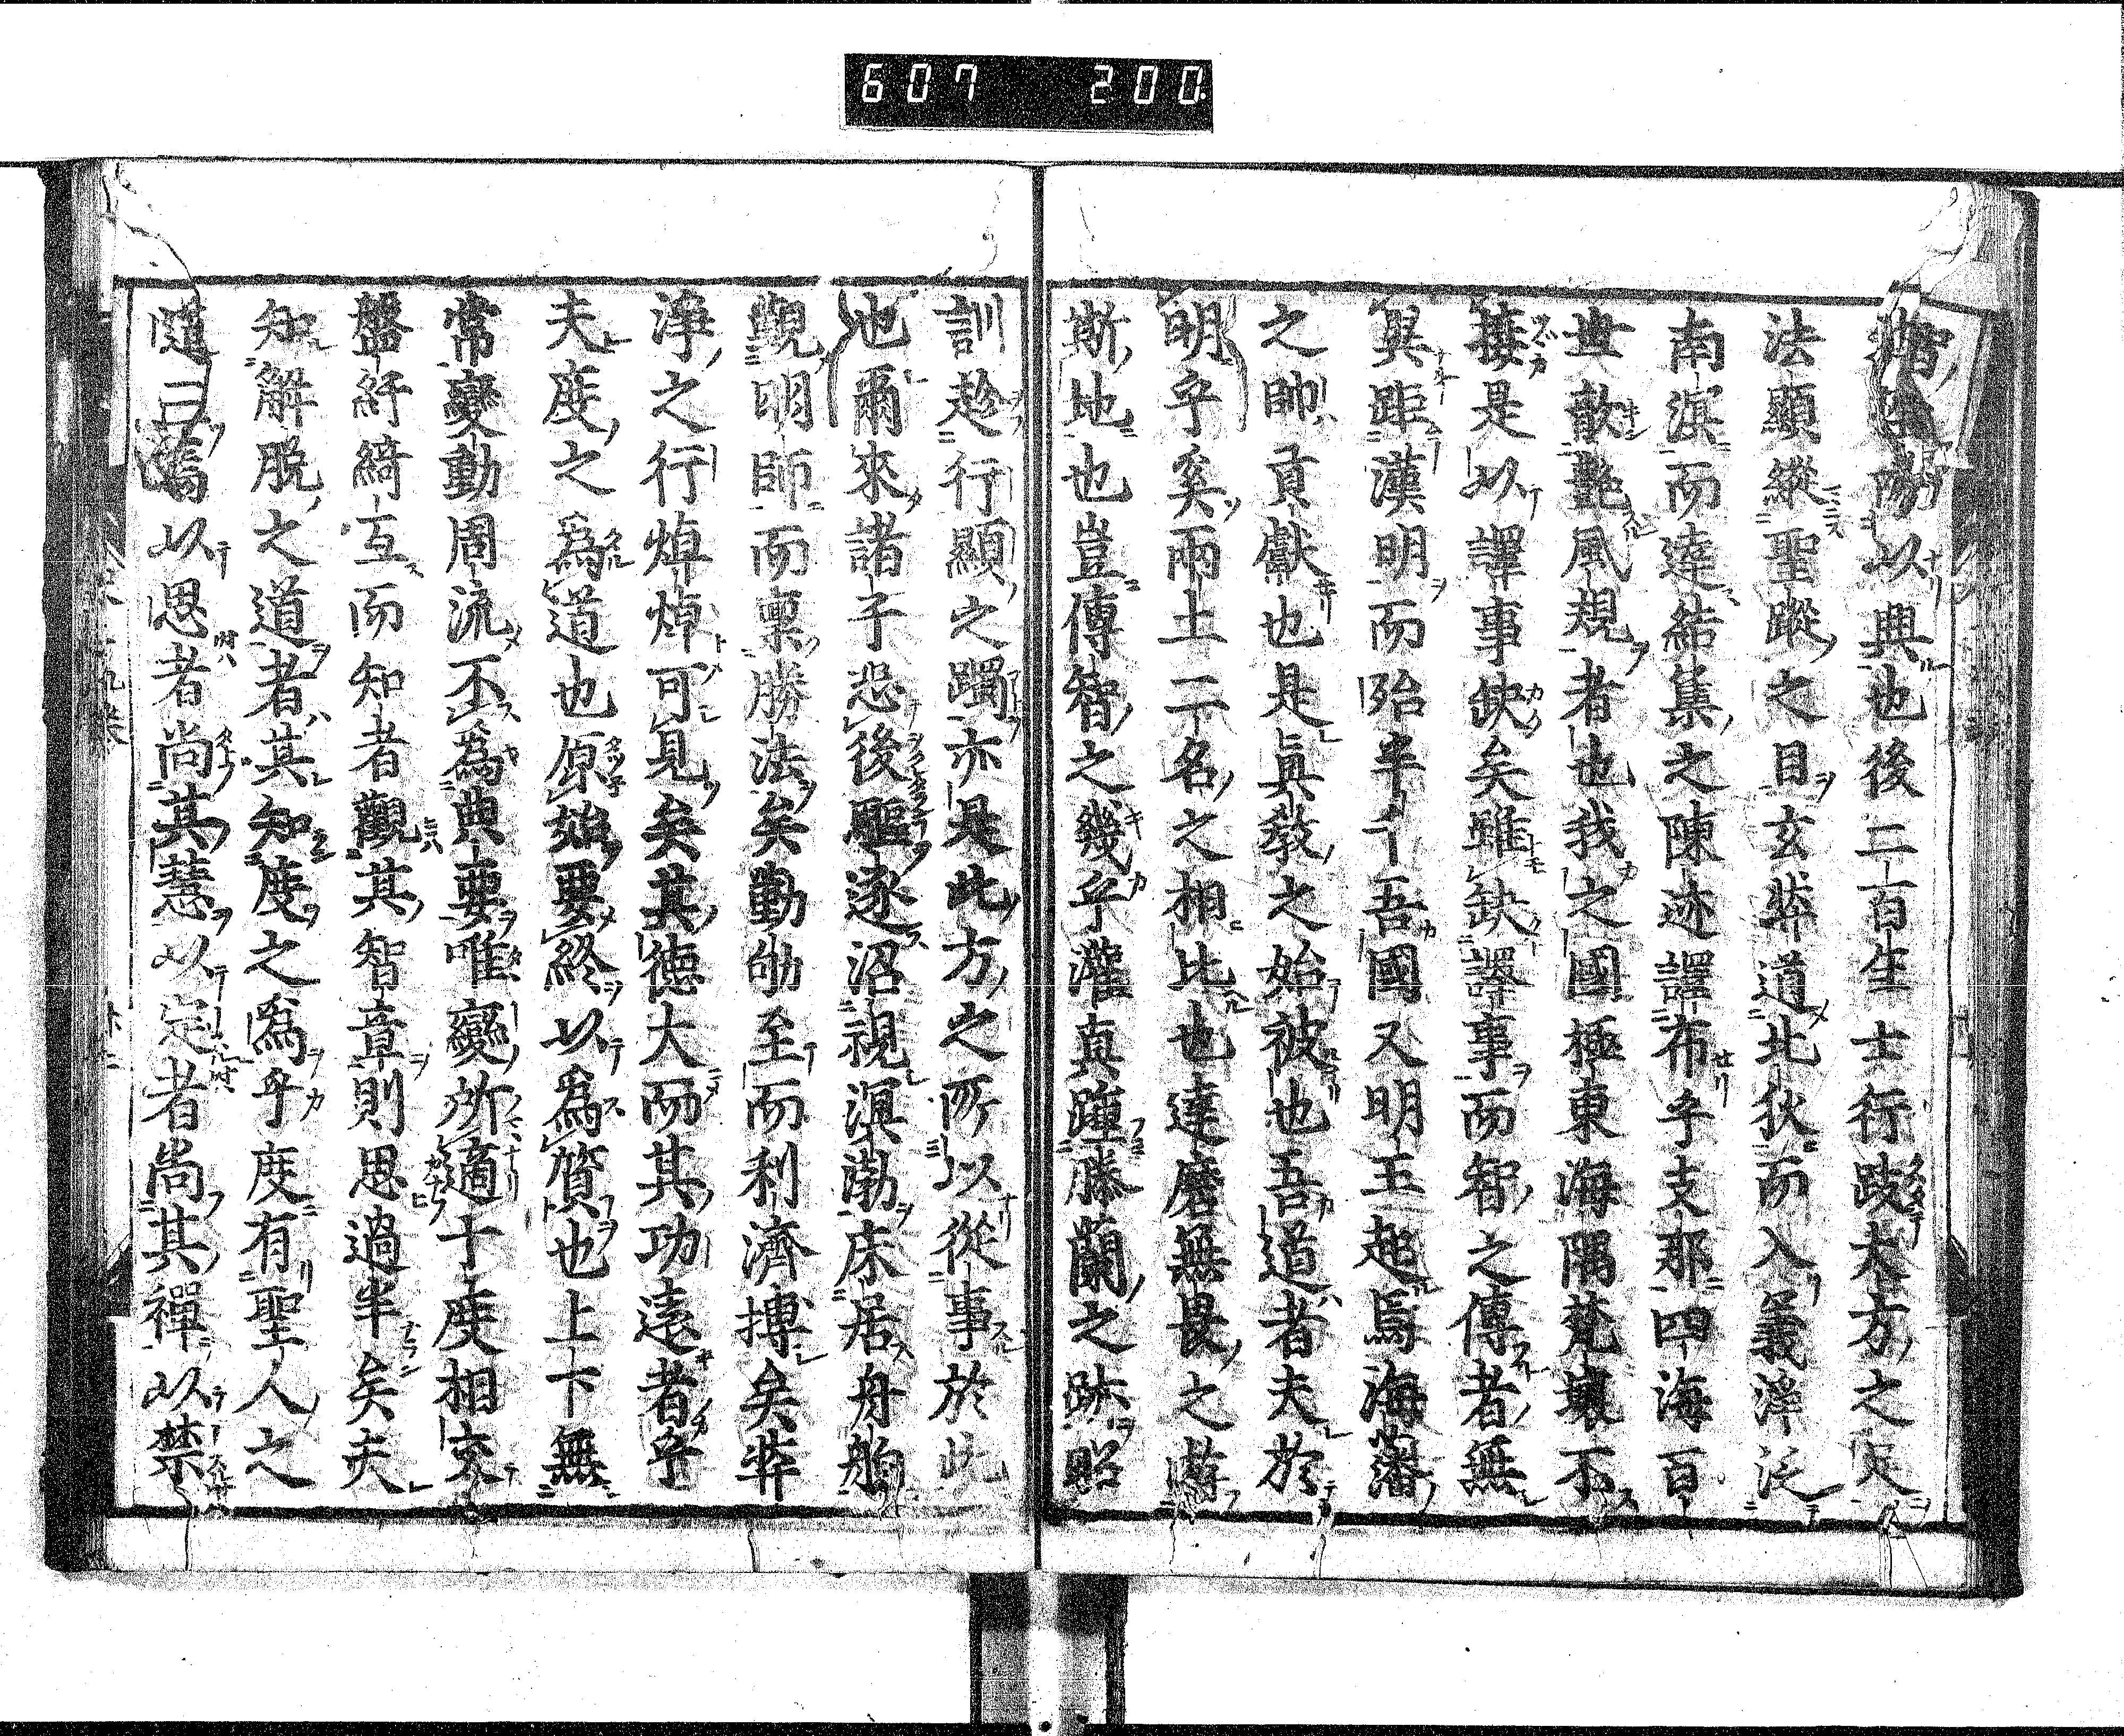 607 200
智 陽以興也後二百生士行跂大方之足
法顯縱聖蹤之目玄奘道北狄而入義淨泛
南溟而達結集之陳迹譯布乎支那四海百
世歆艶風規者也我之國極東海隅梵壤不
接是以譯事缺矣雖缺譯事而智之傳者無
異距漢明而殆半千吾國又明王起焉海藩
之帥貢獻也是眞教之始被也吾道者夫於
明乎奚兩土二名之相比也達磨無畏之遊
斯地也豈傳智之幾乎灌真蹱滕蘭之跡照
訓趁行顯之躅亦是此方之所以從事於此
也爾來諸子忌後驅逐沼視溟渤床居舟船
觀明師而稟勝法矣勤劬至而利濟搏矣奘
淨之行焯焯可見矣其德大而其功遠者乎
夫度之爲道也原始要終以爲質也上下無
常變動周流不爲典要唯變所適十度相交
盤紆綺互而知者觀其智章則思過半矣夫
知解脫之道者其知度之爲乎度有聖人之
道二焉以思者尚其慧以定者尚其禪以禁